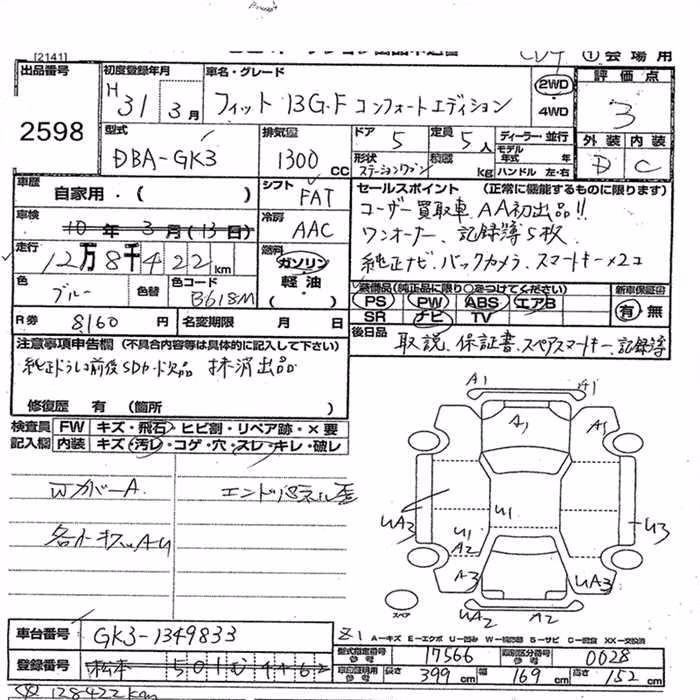 [2141]
① 会場用
出品番号
2598
初度登録年月
H 31 3月
車名・グレード
フィット 13G・F コンフォートエディション
2WD
4WD
評価点
3
外装 内装
D C
型式
DBA-GK3
排気量
1300 CC
ドア 5
定員 5人
形状 ステーションワゴン
積載 kg
ディーラー・並行
モデル年式 年
ハンドル 左・右
車歴
自家用・( )
シフト FAT
車検
10年3月(13日)
冷房 AAC
走行
12万8千422km
燃料
ガソリン
軽油
( )
色 ブルー
色替
色コード B618M
R券 8160円
名変期限 月 日
セールスポイント (正常に機能するものに限ります)
ユーザー買取車 AA初出品!!
ワンオーナー、記録簿5枚、
純正ナビ、バックカメラ、スマートキー×2コ
装備品(純正品に限り○をつけてください)
PS PW ABS エアB
SR ナビ TV
新車保証書
有・無
後日品
取説、保証書、スペアスマートキー、記録簿
注意事項申告欄 (不具合内容等は具体的に記入して下さい)
純正ドラレコ前後SDカード欠品 抹消出品
修復歴 有 (箇所 )
検査員 FW キズ・飛石・ヒビ割・リペア跡・×要
記入欄 内装 キズ・汚レ・コゲ・穴・スレ・キレ・破レ
Wカバー A
エンドパネル歪
A1 A1
A1 A1
UA2 U1 U1 U3
A2
A3 UA3
UA2 A2
スペア
車台番号 GK3-1349833
A-キズ E-エクボ U-凹み W-補修跡 S-サビ C-腐食 XX-交換済
登録番号 松本 501 む 4462
型式指定番号 参考 17566
類別区分番号 参考 0028
車証証明用 参考 長さ 399cm 幅 169cm 高さ 152cm
128422km